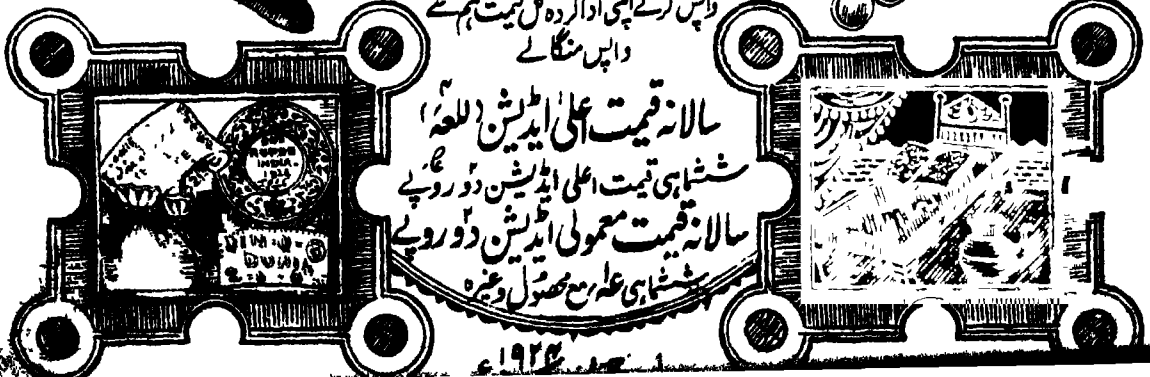 واپس کرکے اپنی ادا کردہ کل قیمت ہم سے
واپس منگالے
سالانہ قیمت اعلیٰ ایڈیشن (للعہ)
ششماہی قیمت اعلی ایڈیشن دو روپے
سالانہ قیمت معمولی ایڈیشن دو روپے
ششماہی عہ مع محصول وغیرہ
ONE
RUPEE
INDIA